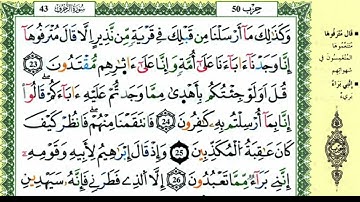 43
سورة الزخرف
حزب 50
وَكَذَٰلِكَ مَا أَرْسَلْنَا مِن قَبْلِكَ فِي قَرْيَةٍ مِّن نَّذِيرٍ اِلَّا قَالَ مُتْرَفُوهَا
إِنَّا وَجَدْنَا ءَابَاءَنَا عَلَىٰ أُمَّةٍ وَإِنَّا عَلَىٰ ءَاثَٰرِهِم مُّقْتَدُونَ 23
قُلَ اَوَلَوْ جِئْتُكُم بِأَهْدَىٰ مِمَّا وَجَدتُّمْ عَلَيْهِ ءَابَاءَكُمْ قَالُوا
إِنَّا بِمَا أُرْسِلْتُم بِهِ كَٰفِرُونَ 24 فَانتَقَمْنَا مِنْهُمْ فَانظُرْ كَيْفَ
كَانَ عَٰقِبَةُ الْمُكَذِّبِينَ 25 وَإِذْ قَالَ إِبْرَٰهِيمُ لِأَبِيهِ وَقَوْمِهِ
إِنَّنِي بَرَاءٌ مِّمَّا تَعْبُدُونَ 26 إِلَّا اَلَّذِي فَطَرَنِي فَإِنَّهُ سَيَهْدِينِ
قال مترفوها
متنعموها
المنغمسون في
شهواتهم
إنني براء
بريء